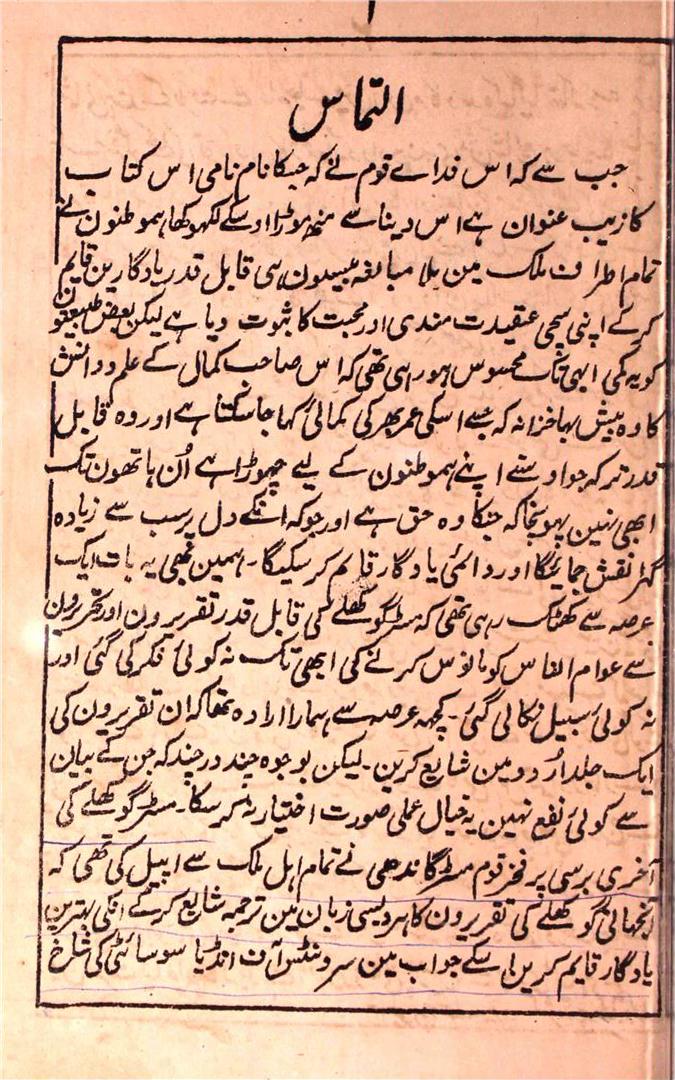 ۱
التماس
جب سے کہ اس فداے قوم نے کہ جسکا نام نامی اس کتاب
کا زیب عنوان ہے اس دینا سے منھ موڑا اوسکے لکھوکھا ہموطنون نے
تمام اطراف ملک مین بلا مبالغہ بیسیون ہی قابل قدر یادگارین قایم
کرکے اپنی سچی عقیدت مندی اور محبت کا ثبوت دیا ہے لیکن بعض طبیعتون
کو یہ کمی ابہی تک محسوس ہو رہی تھی کہ اس صاحب کمال کے علم و دانش
کا وہ بیش بہا خزانہ کہ جسے اسکی عمر بھر کی کمائی کہا جاسکتا ہے اور وہ قابل
قدر ترکہ جو اوسنے اپنے ہموطنون کے لیے چھوڑا ہے اُن ہاتھون تک
ابھی نہین پہونچا کہ جنکا وہ حق ہے اور جو کہ انکے دل پر سب سے زیادہ
گہرا نقش جمایگا اور دائمی یادگار قایم کرسکیگا۔ ہمین بھی یہ بات ایک
عرصہ سے کھٹک رہی تھی کہ مسٹر گوکھلے کی قابل قدر تقریرون اور تحریرون
سے عوام الناس کو مانوس کرنے کی ابھی تک نہ کوئی فکر کی گئی اور
نہ کوئی سبیل نکالی گئی۔ کچھہ عرصہ سے ہمارا ارادہ تھا کہ ان تقریرون کی
ایک جلد اُردو مین شایع کرین۔ لیکن بوجوہ چند در چند کہ جن کے بیان
سے کوئی نفع نہین یہ خیال عملی صورت اختیار نہ کرسکا۔ مسٹر گوکھلے کی
آخری برسی پر فخر قوم مسٹر گاندھی نے تمام اہل ملک سے اپیل کی تھی کہ
آنجہانی گوکھلے کی تقریرون کا ہر دیسی زبان مین ترجمہ شایع کرکے انکی بہترین
یادگار قایم کرین اسکے جواب مین سرونٹس آف انڈیا سوسائٹی کی شاخ